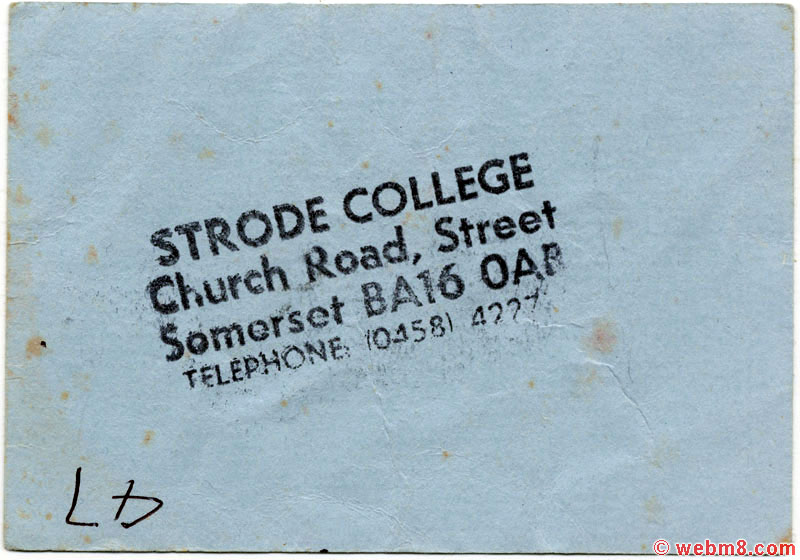 STRODE COLLEGE
Church Road, Street
Somerset BA16 0AB
TELEPHONE: (0458) 4227
LD
© webm8.com